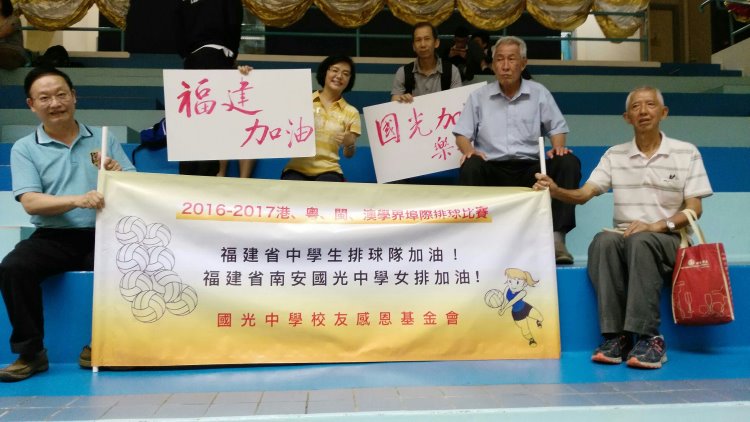 福建
加油
國光加
樂
2016-2017港、粵、閩、澳學界埠際排球比賽
福建省中學生排球隊加油！
福建省南安國光中學女排加油！
國光中學校友感恩基金會